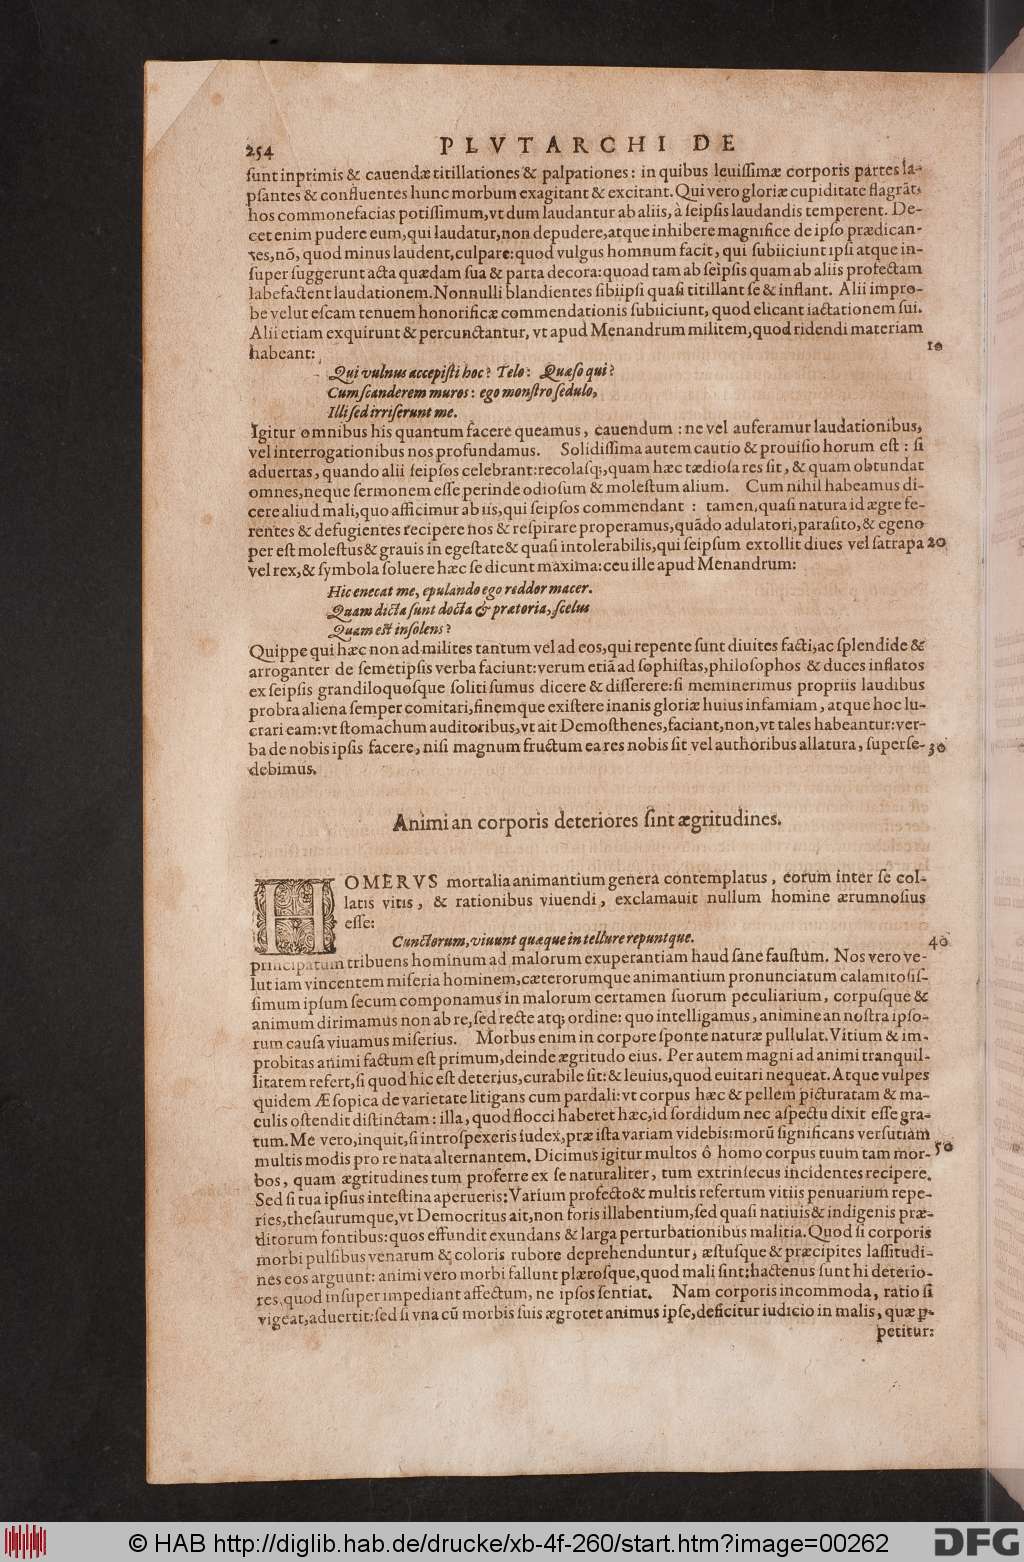 254 PLVTARCHI DE
ſunt inprimis & cauendæ titillationes & palpationes: in quibus leuiſſimæ corporis partes la-
pſantes & confluentes hunc morbum exagitant & excitant. Qui vero gloriæ cupiditate flagrāt,
hos commonefacias potiſſimum, vt dum laudantur ab aliis, à ſeipſis laudandis temperent. De-
cet enim pudere eum, qui laudatur, non depudere, atque inhibere magnifice de ipſo prædican-
tes, nō, quod minus laudent, culpare: quod vulgus homnum facit, qui ſubiiciunt ipſi atque in-
ſuper ſuggerunt acta quædam ſua & parta decora: quoad tam ab ſeipſis quam ab aliis profectam
labefactent laudationem. Nonnulli blandientes ſibiipſi quaſi titillant ſe & inflant. Alii impro-
be velut eſcam tenuem honorificæ commendationis ſubiiciunt, quod elicant iactationem ſui.
Alii etiam exquirunt & percunctantur, vt apud Menandrum militem, quod ridendi materiam
habeant: 10
Qui vulnus accepiſti hoc? Telo: Quæſo qui?
Cum ſcanderem muros: ego monſtro ſedulo,
Illi ſed irriſerunt me.
Igitur omnibus his quantum facere queamus, cauendum: ne vel auferamur laudationibus,
vel interrogationibus nos profundamus. Solidiſſima autem cautio & prouiſio horum eſt: ſi
aduertas, quando alii ſeipſos celebrant: recolaſq;, quam hæc tædioſa res ſit, & quam obtundat
omnes, neque ſermonem eſſe perinde odioſum & moleſtum alium. Cum nihil habeamus di-
cere aliud mali, quo afficimur ab iis, qui ſeipſos commendant: tamen, quaſi natura id ægre fe-
rentes & defugientes recipere nos & reſpirare properamus, quādo adulatori, paraſito, & egeno
per eſt moleſtus & grauis in egeſtate & quaſi intolerabilis, qui ſeipſum extollit diues vel ſatrapa 20
vel rex, & ſymbola ſoluere hæc ſe dicunt maxima: ceu ille apud Menandrum:
Hic enecat me, epulando ego reddor macer.
Quam dicta ſunt docta & prætoria, ſcelus
Quam eſt inſolens?
Quippe qui hæc non ad milites tantum vel ad eos, qui repente ſunt diuites facti, ac ſplendide &
arroganter de ſemetipſis verba faciunt: verum etiā ad ſophiſtas, philoſophos & duces inflatos
ex ſeipſis grandiloquoſque ſoliti ſumus dicere & diſſerere: ſi meminerimus propriis laudibus
probra aliena ſemper comitari, finemque exiſtere inanis gloriæ huius infamiam, atque hoc lu-
crari eam: vt ſtomachum auditoribus, vt ait Demoſthenes, faciant, non, vt tales habeantur: ver-
ba de nobis ipſis facere, niſi magnum fructum ea res nobis ſit vel authoribus allatura, ſuperſe- 30
debimus.
Animi an corporis deteriores ſint ægritudines.
HOMERVS mortalia animantium genera contemplatus, eorum inter ſe col-
latis vitis, & rationibus viuendi, exclamauit nullum homine ærumnoſius
eſſe:
Cunctorum, viuunt quæque in tellure repuntque. 40
principatum tribuens hominum ad malorum exuperantiam haud ſane fauſtum. Nos vero ve-
lut iam vincentem miſeria hominem, cæterorumque animantium pronunciatum calamitoſiſ-
ſimum ipſum ſecum componamus in malorum certamen ſuorum peculiarium, corpuſque &
animum dirimamus non ab re, ſed recte atq; ordine: quo intelligamus, animine an noſtra ipſo-
rum cauſa viuamus miſerius. Morbus enim in corpore ſponte naturæ pullulat. Vitium & im-
probitas animi factum eſt primum, deinde ægritudo eius. Per autem magni ad animi tranquil-
litatem refert, ſi quod hic eſt deterius, curabile ſit: & leuius, quod euitari nequeat. Atque vulpes
quidem Æſopica de varietate litigans cum pardali: vt corpus hæc & pellem picturatam & ma-
culis oſtendit diſtinctam: illa, quod flocci haberet hæc, id ſordidum nec aſpectu dixit eſſe gra-
tum. Me vero, inquit, ſi introſpexeris iudex, præ iſta variam videbis: morū ſignificans verſutiam
multis modis pro re nata alternantem. Dicimus igitur multos ô homo corpus tuum tam mor- 50
bos, quam ægritudines tum proferre ex ſe naturaliter, tum extrinſecus incidentes recipere.
Sed ſi tua ipſius inteſtina aperueris: Varium profecto & multis refertum vitiis penuarium repe-
ries, theſaurumque, vt Democritus ait, non foris illabentium, ſed quaſi natiuis & indigenis præ-
ditorum fontibus: quos effundit exundans & larga perturbationibus malitia. Quod ſi corporis
morbi pulſibus venarum & coloris rubore deprehenduntur, æſtuſque & præcipites laſſitudi-
nes eos arguunt: animi vero morbi fallunt plæroſque, quod mali ſint: hactenus ſunt hi deterio-
res, quod inſuper impediant affectum, ne ipſos ſentiat. Nam corporis incommoda, ratio ſi
vigeat, aduertit: ſed ſi vna cū morbis ſuis ægrotet animus ipſe, deficitur iudicio in malis, quæ ꝑ-
petitur:
© HAB http://diglib.hab.de/drucke/xb-4f-260/start.htm?image=00262 DFG